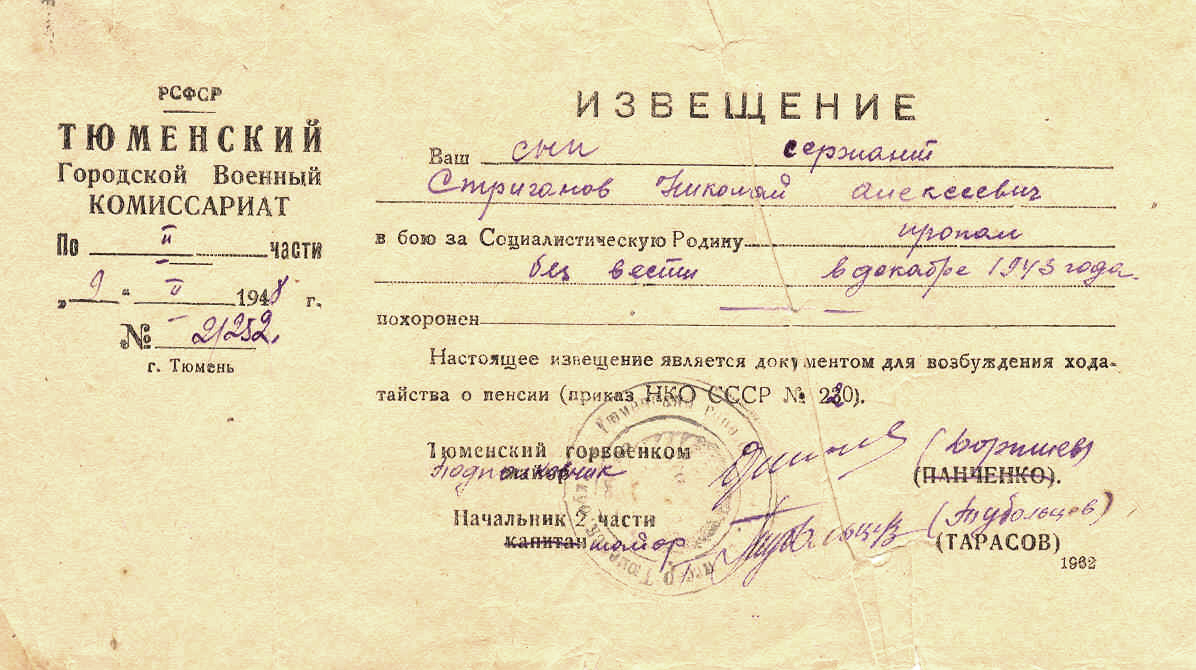 РСФСР
ТЮМЕНСКИЙ
Городской Военный
КОМИССАРИАТ
По II части
„9“ II 1948 г.
№ 2/252.
г. Тюмень
ИЗВЕЩЕНИЕ
Ваш сын сержант
Стриганов Николай Алексеевич
в бою за Социалистическую Родину пропал
без вести в декабре 1943 года.
похоронен
Настоящее извещение является документом для возбуждения хода-
тайства о пенсии (приказ НКО СССР № 220).
Тюменский горвоенком
подполковник
(ПАНЧЕНКО).
Начальник 2 части
капитан майор
(Тубольцев)
(ТАРАСОВ)
1962